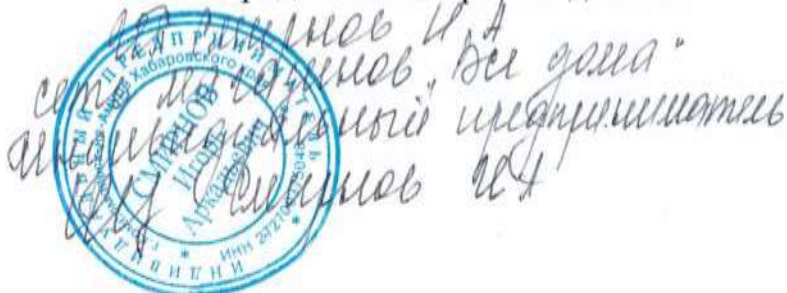 ИП Смирнов И.А
сеть магазинов "Все дома"
индивидуальный предприниматель
Смирнов ИА
ИНДИВИДУАЛЬНЫЙ ПРЕДПРИНИМАТЕЛЬ
Хабаровского края
СМИРНОВ
Игорь
Аркадьевич
ИНН